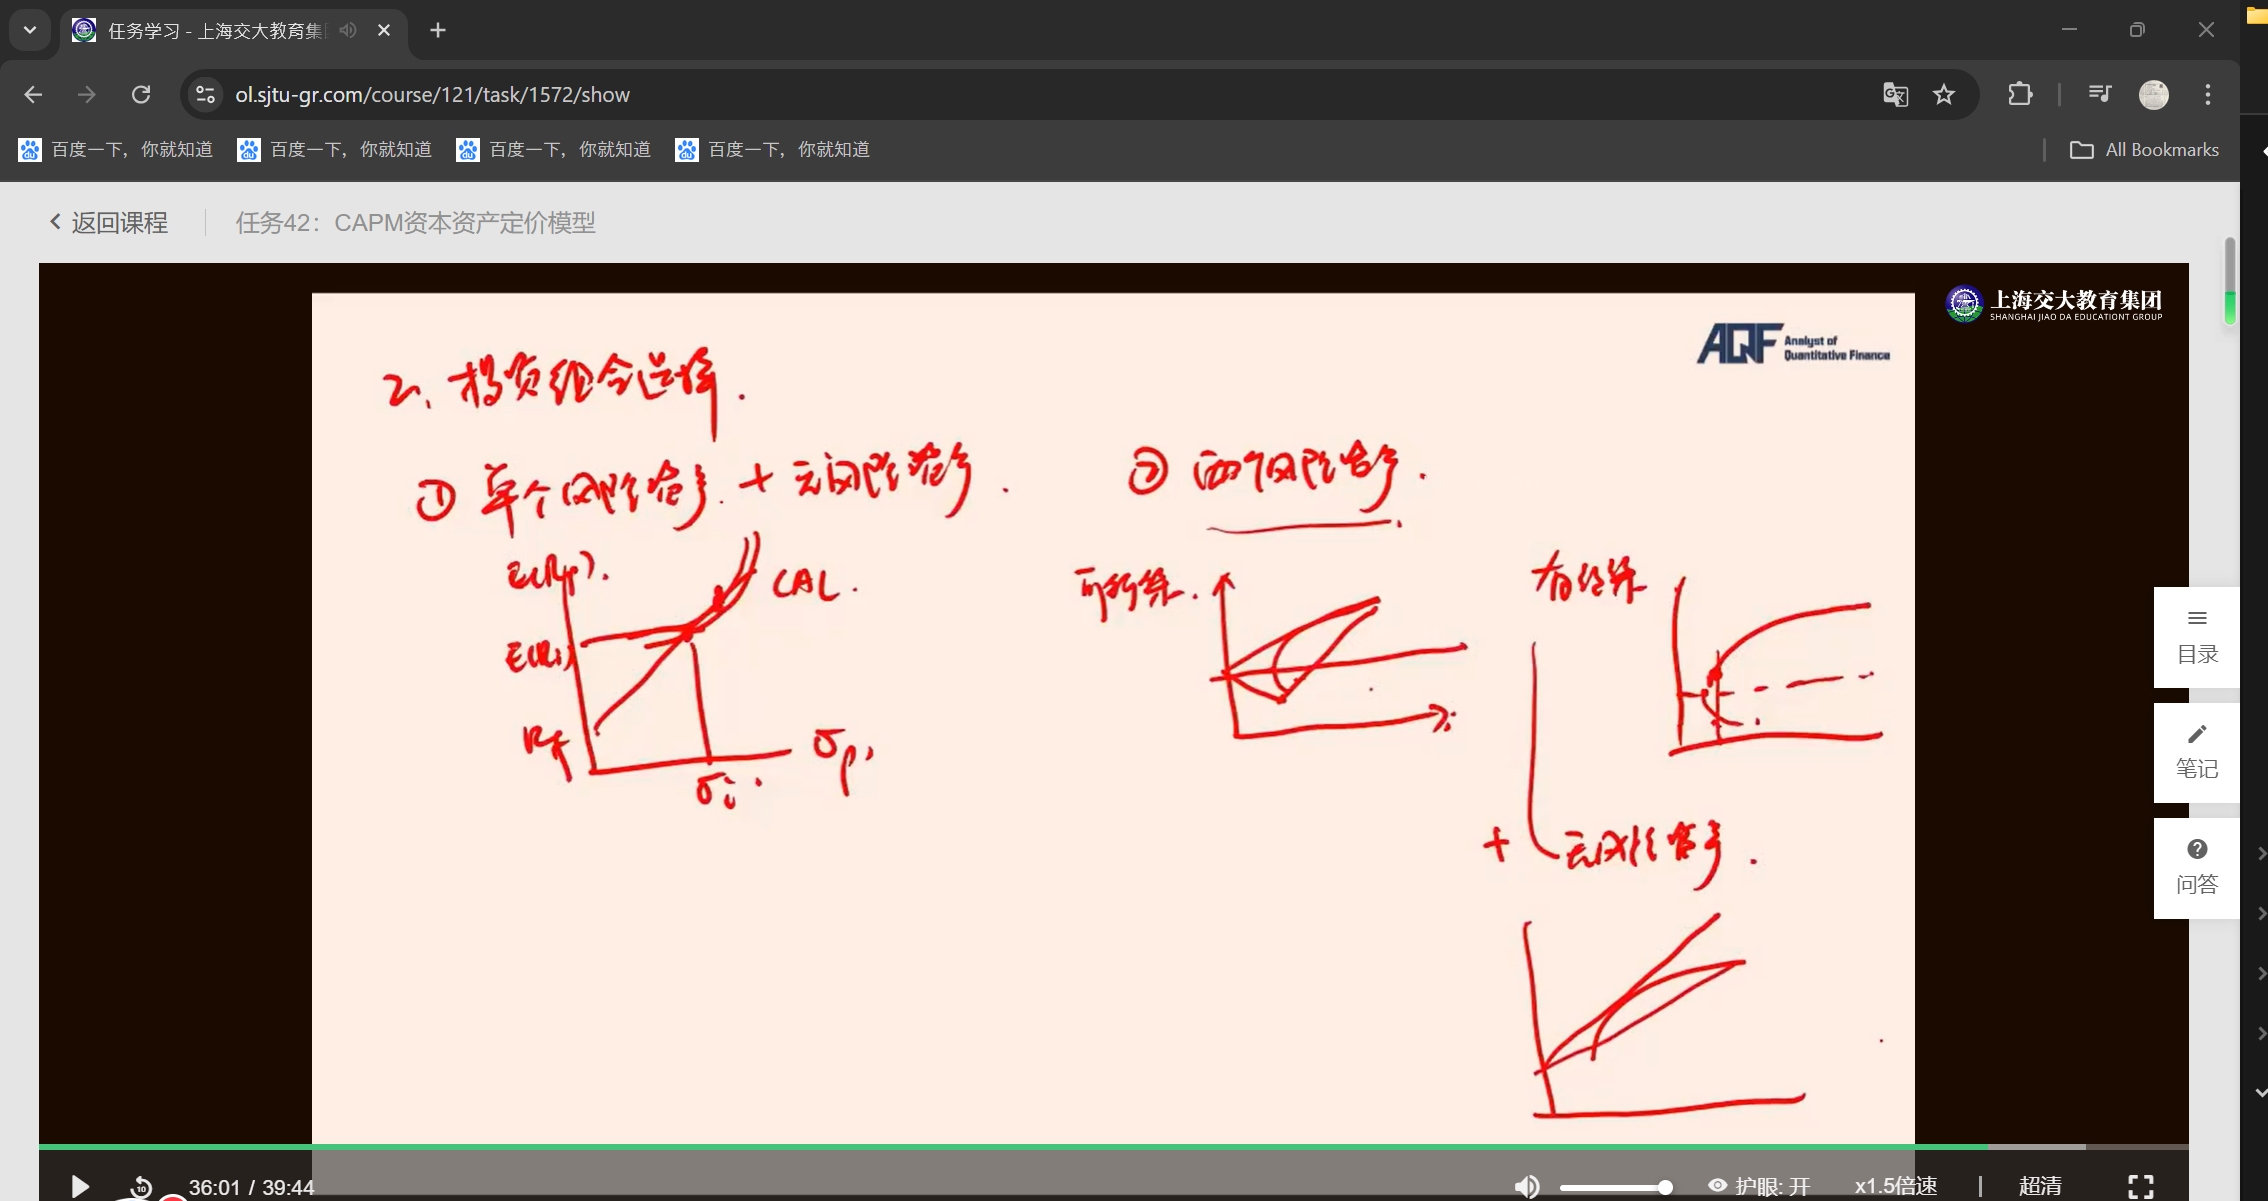 任务学习 - 上海交大教育集
ol.sjtu-gr.com/course/121/task/1572/show
百度一下，你就知道 百度一下，你就知道 百度一下，你就知道 百度一下，你就知道 All Bookmarks
返回课程 任务42：CAPM资本资产定价模型
上海交大教育集团
SHANGHAI JIAO DA EDUCATIONT GROUP
AQF Analyst of Quantitative Finance
2、投资组合选择.
① 单个风险资产 + 无风险资产.
② 两个风险资产.
E(Rp).
CAL.
E(Ri)
Rf
σp,
σi.
可行集.
有效集
+ 无风险资产.
目录
笔记
问答
10
36:01 / 39:44
护眼: 开
x1.5倍速
超清